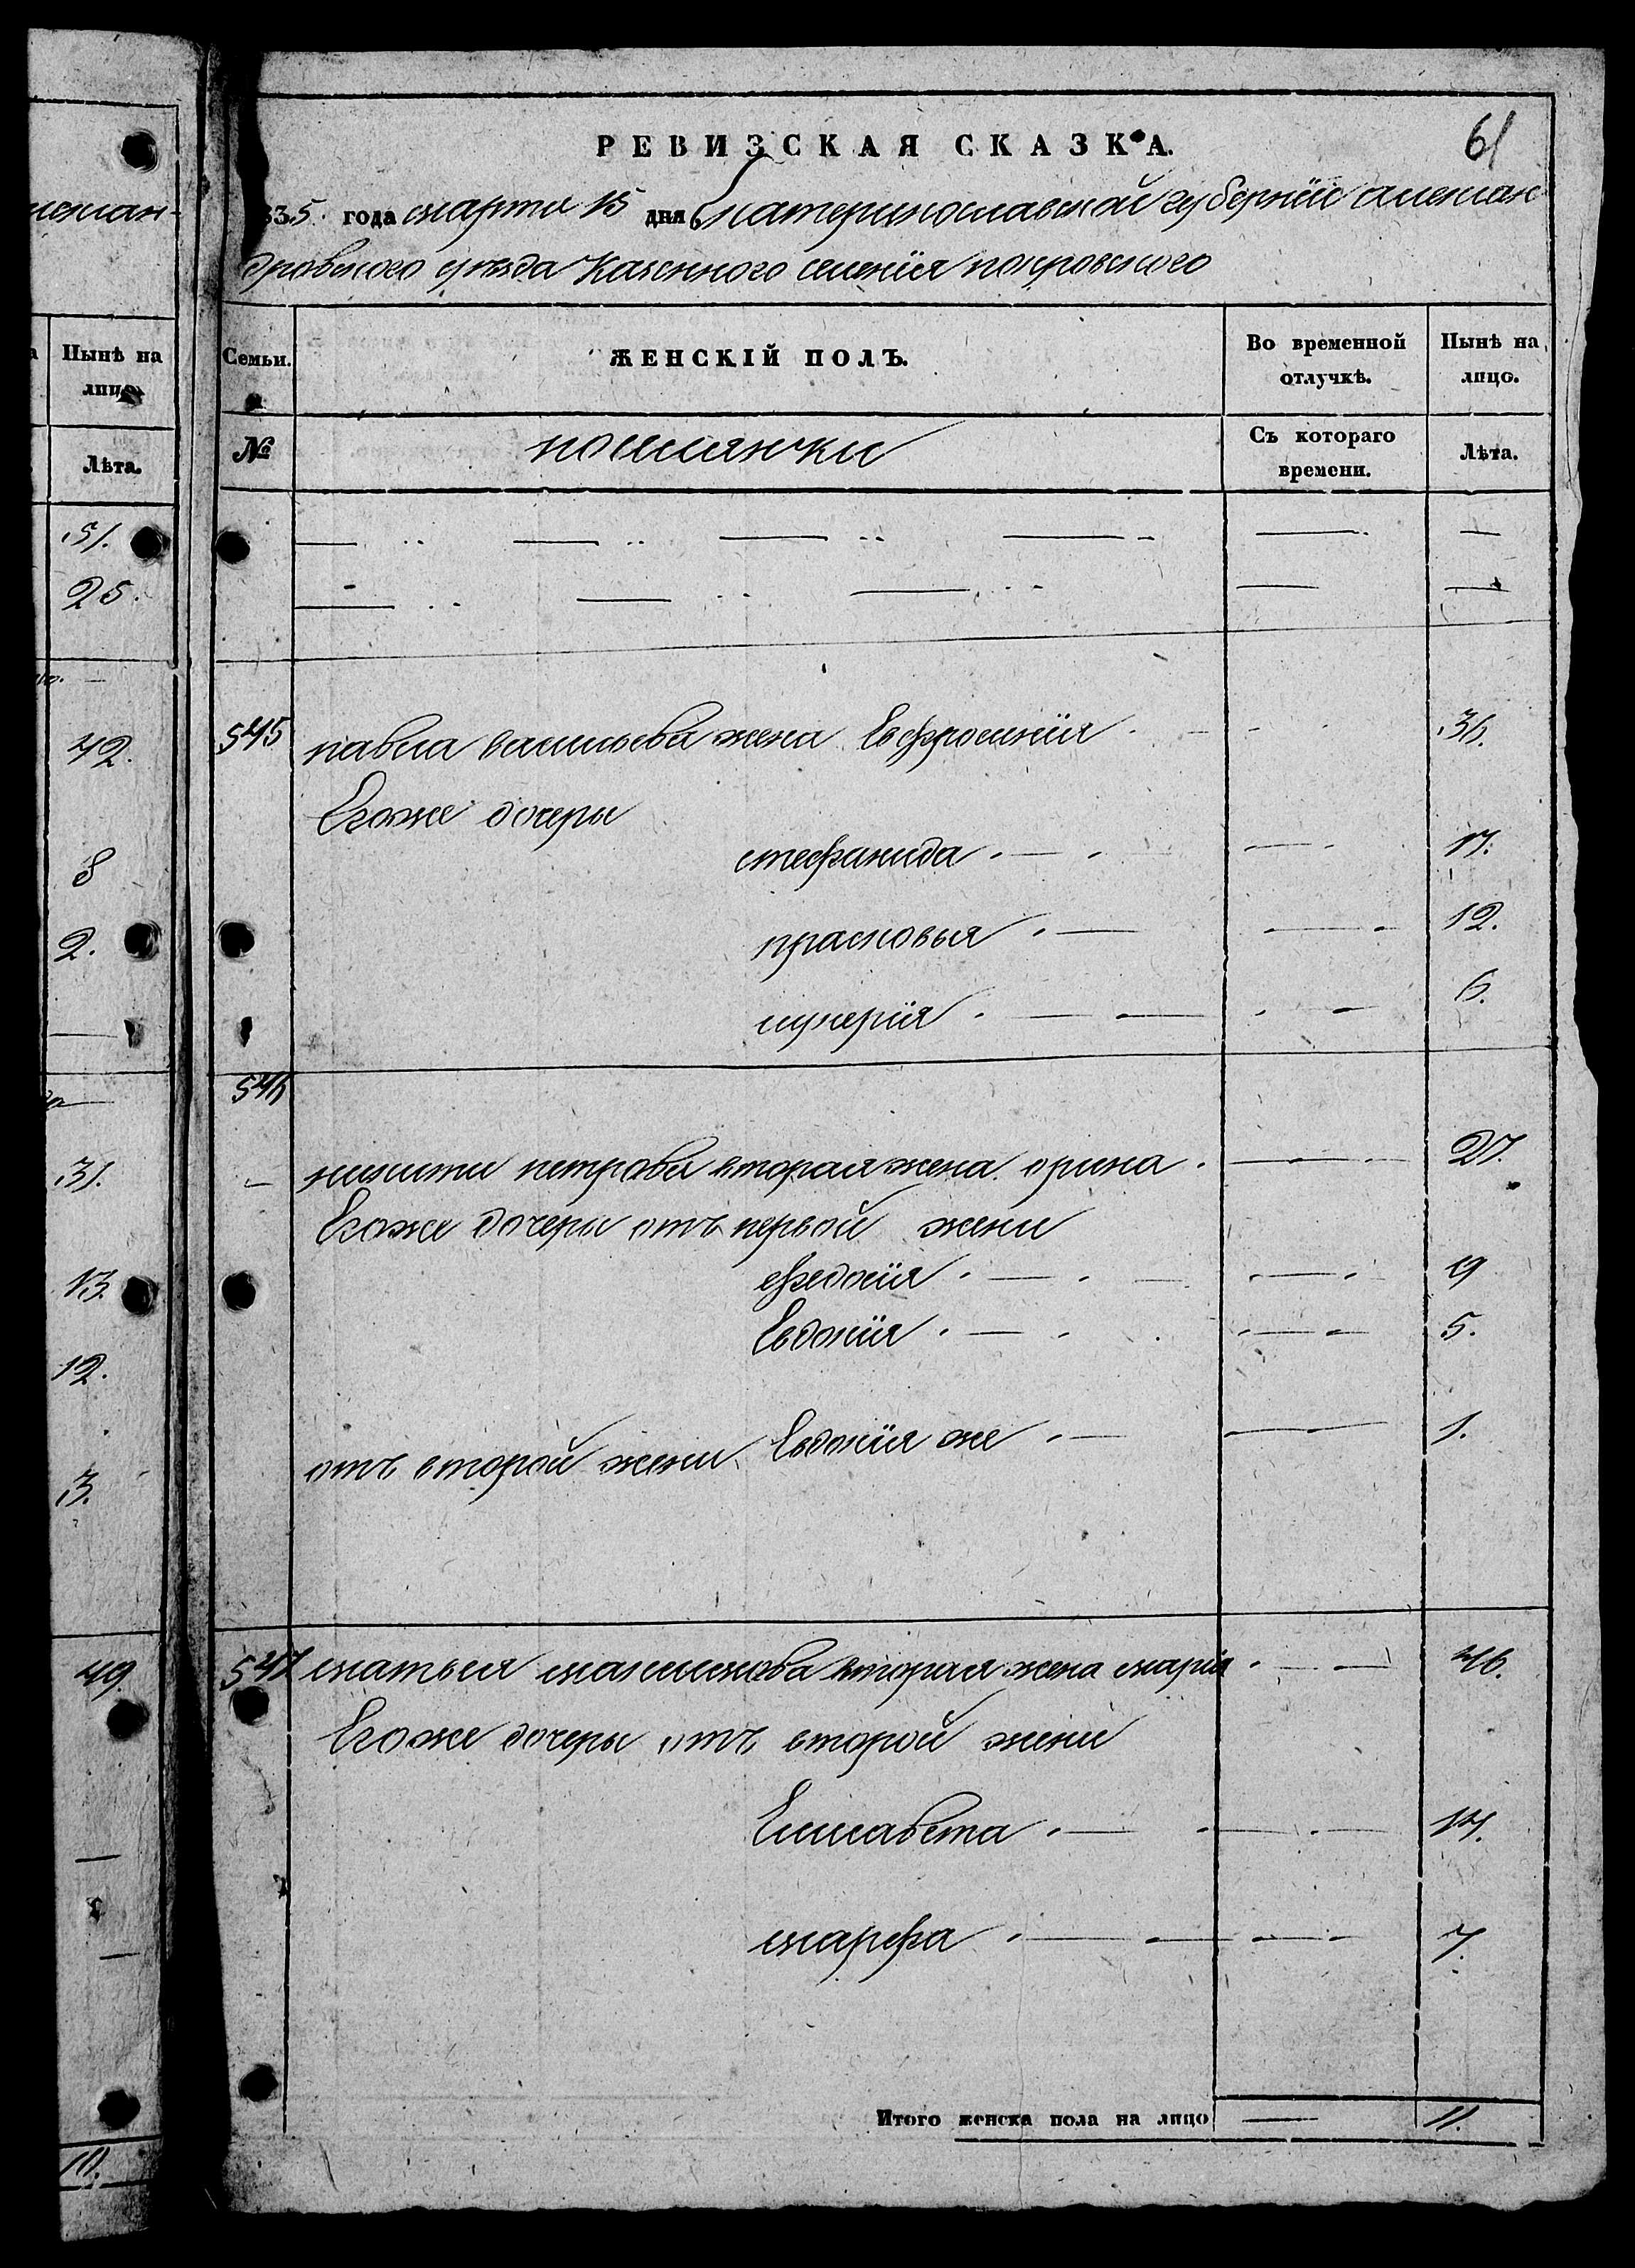 61
РЕВИЗСКАЯ СКАЗКА.
835. года марта 15 дня Екатеринославской губернїи александ
дровского уѣзда Казенного селенїя покровского
Нынѣ на
лицо.
Лѣта.
51.
25.
42.
8
2.
31.
13.
12.
3.
49
10.
Семьи.
ЖЕНСКІЙ ПОЛЪ.
Во временной
отлучкѣ.
Нынѣ на
лицо.
№
поселянки
Съ котораго
времени.
Лѣта.
545 павла васильева жена Евфросинїя 36.
Егоже дочеры
стефанида 17.
прасковья 12.
лукерїя 6.
546
никиты петрова вторая жена орина 27.
Егоже дочеры отъ первой жени
феодосїя 9
Евдокїя 5.
отъ второй жени Евдокїя же 1.
547 матвея максимова вторая жена марїя 46.
Егоже дочеры отъ второй жени
Елисавета 14.
марфа 7.
Итого женска пола на лицо 11.